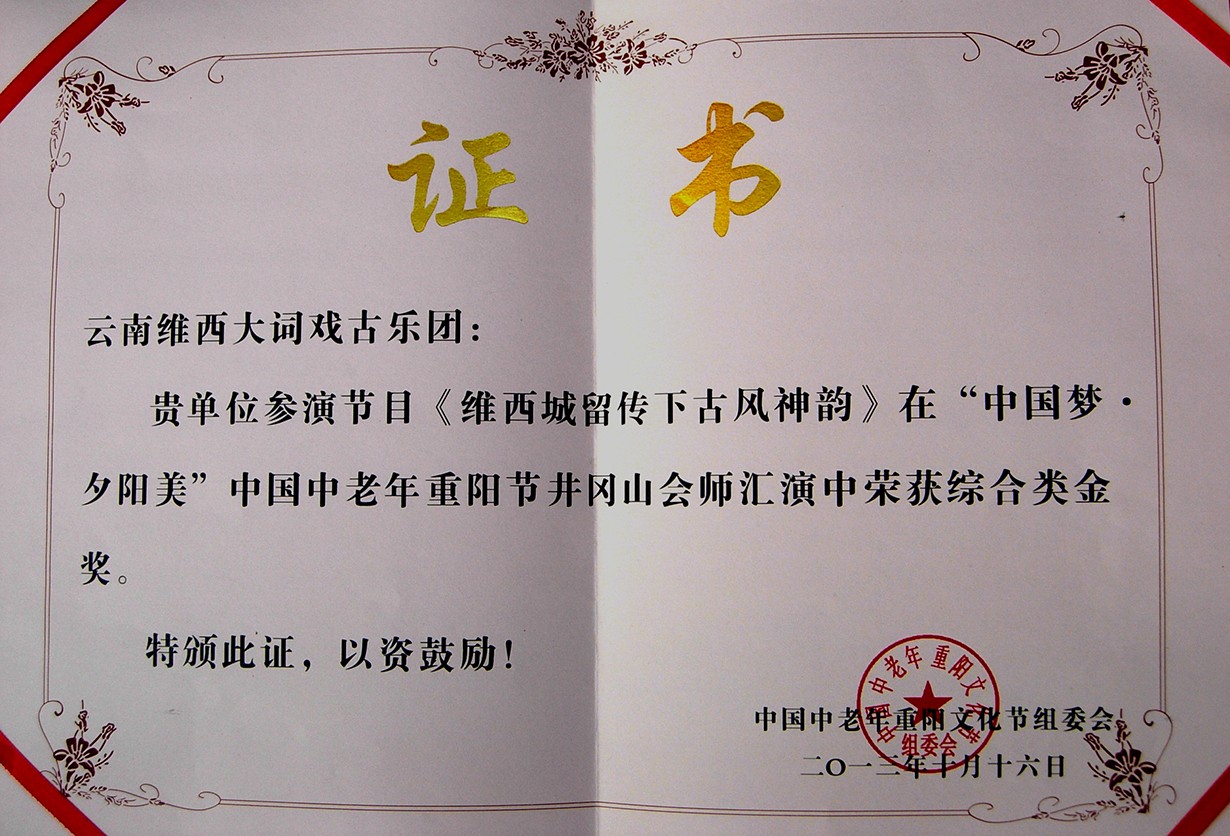 证书
云南维西大词戏古乐团：
贵单位参演节目《维西城留传下古风神韵》在“中国梦·
夕阳美”中国中老年重阳节井冈山会师汇演中荣获综合类金
奖。
特颁此证，以资鼓励！
中国中老年重阳文化节组委会
二〇一三年十月十六日
中国中老年重阳文化节
组委会